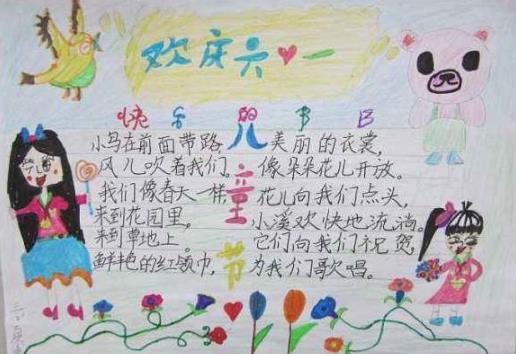 欢庆六一
快乐的节日
儿童节
小鸟在前面带路,
风儿吹着我们。
我们像春天一样,
来到花园里,
来到草地上。
鲜艳的红领巾,
美丽的衣裳,
像朵朵花儿开放。
花儿向我们点头,
小溪欢快地流淌。
它们向我们祝贺,
为我们歌唱。